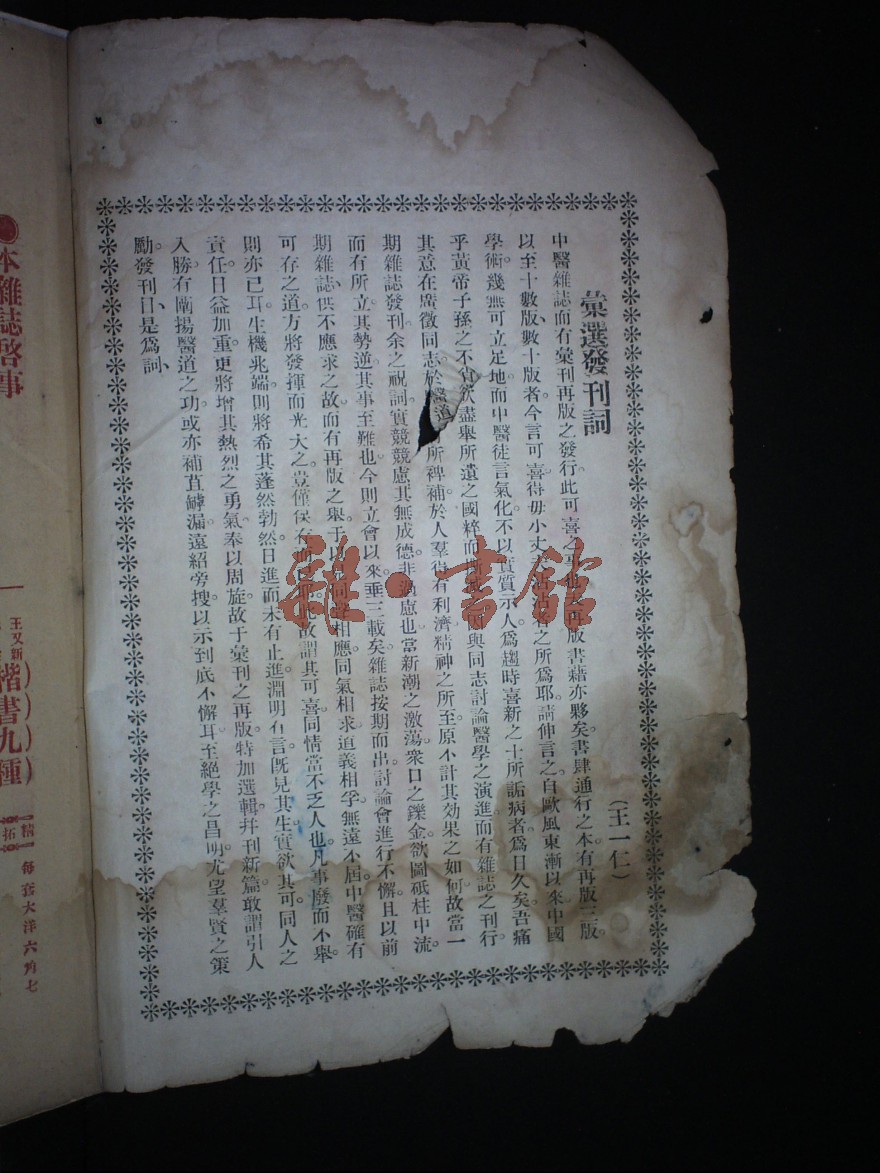 彙選發刊詞
(王一仁)
中醫雜誌而有彙刊再版之發行。此可喜之事也。夫再版書籍亦夥矣。書肆通行之本。有再版三版。
以至十數版、數十版者。今言可喜。得毋小丈夫沾沾者之所爲耶。請伸言之。自歐風東漸以來。中國
學術。幾無可立足地。而中醫徒言氣化。不以實質示人。爲趨時喜新之士所詬病者。爲日久矣。吾痛
乎黃帝子孫之不肖。欲盡舉所遺之國粹而。因與同志討論醫學之演進。而有雜誌之刊行。
其意在廣徵同志。於醫道所裨補。於人羣得有利濟。精神之所至。原不計其效果之如何。故當一
期雜誌發刊。余之祝詞。實競競慮其無成。德非過慮也。當新潮之激蕩。衆口之鑠金。欲圖砥柱中流。
而有所立。其勢逆。其事至難也。今則立會以來。垂三載矣。雜誌按期而出。討論會進行不懈。且以前
期雜誌、供不應求之故。而有再版之舉。于以同聲相應。同氣相求。道義相孚。無遠不屆。中醫確有
可存之道。方將發揮而光大之。豈僅保存而已耶。故謂其可喜。同情當不乏人也。凡事廢而不舉。
則亦已耳。生機兆端。則將希其蓬然勃然。日進而未有止進。淵明有言。旣見其生。實欲其可。同人之
責任日益加重。更將增其熱烈之勇氣。奉以周旋。故于彙刊之再版。特加選輯。幷刊新篇。敢謂引人
入勝。有闡揚醫道之功。或亦補苴罅漏。遠紹旁搜。以示到底不懈耳。至絕學之昌明。尤望羣賢之策
勵。發刊日、是爲詞、
雜·書館
本雜誌啓事
王又新
楷書九種
精拓
每套大洋六角七